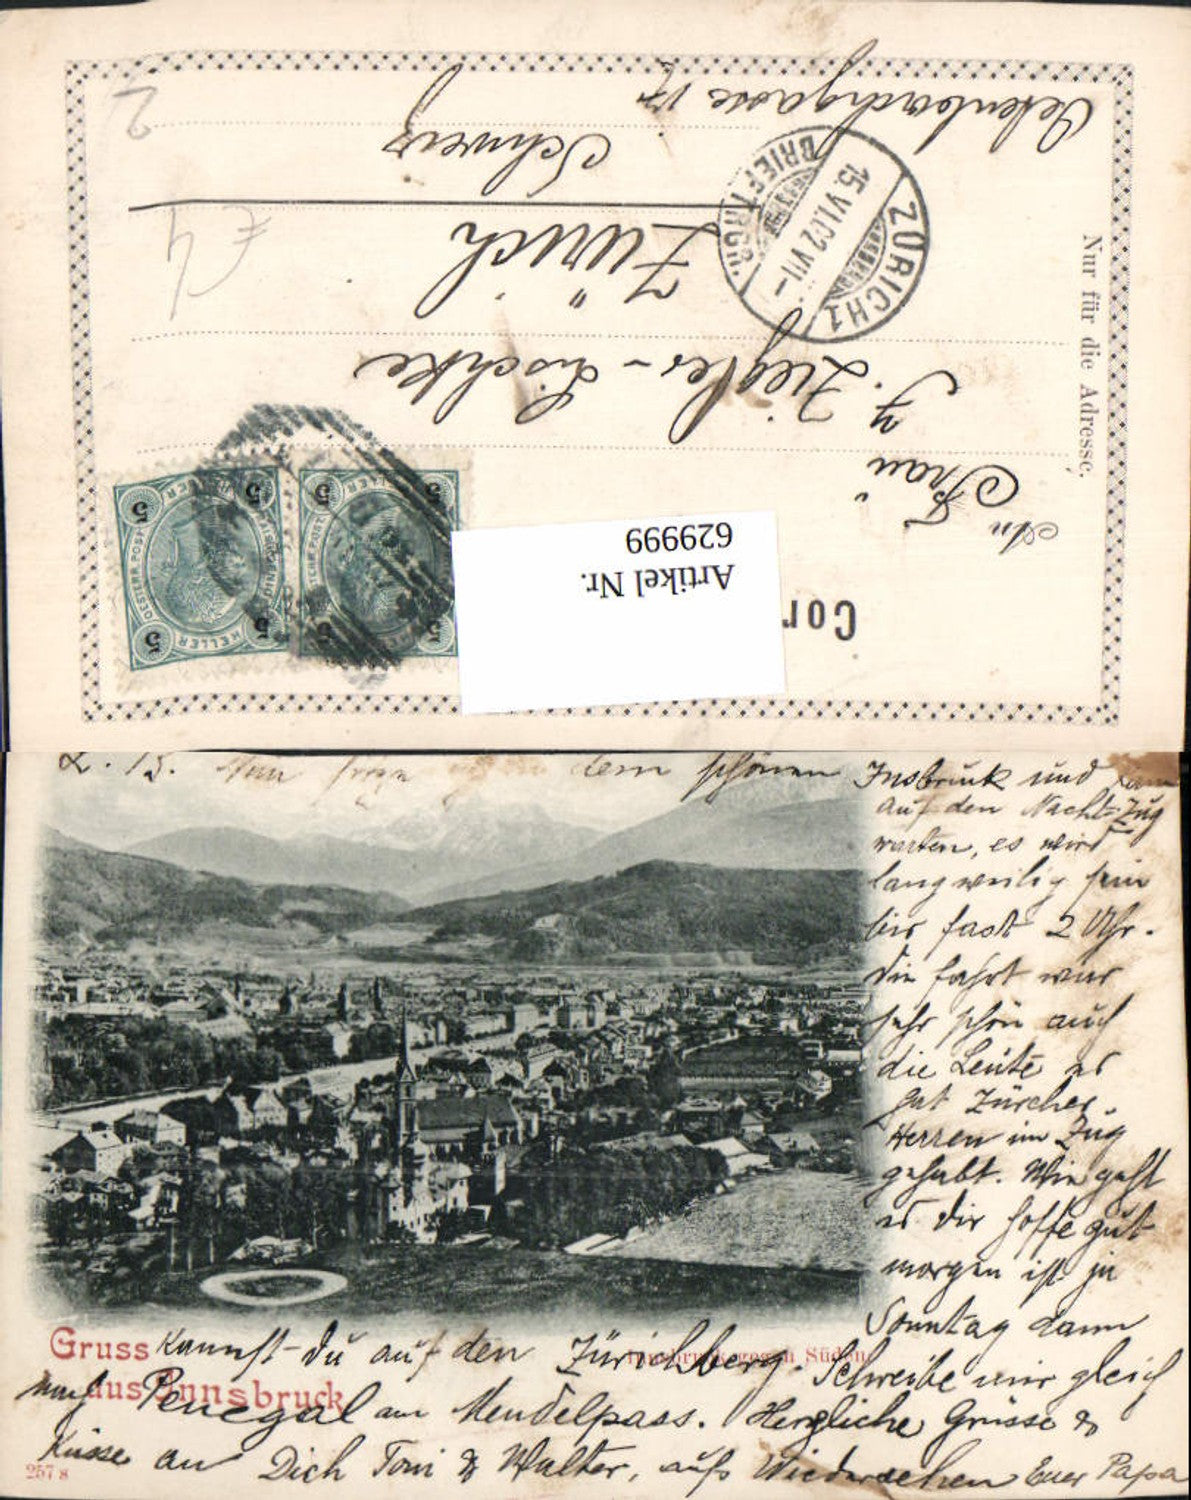 Nur für die Adresse.
An
Frau
J. Ziegler-Lischke
Zürich
Schweiz
Oetenbachgasse 17
ZÜRICH 1
15.VI.02 VII-
BRIEFTRGS.
Cor
Artikel Nr.
629999
£4
2
5 5 5 5
5 5 5 5
OESTERR. POST
HELLER
L. B. Nun dem schönen Insbruck und
auf den Nacht-Zug
warten, es wird
langweilig sein
bis fast 2 Uhr.
die Fahrt war
sehr schön auch
die Leute es
hat Zürcher
Herren im Zug
gehabt. Wie geht
es dir hoffe gut
morgen ist ja
Sonntag dann
kannst du auf den Zürichberg. Schreibe mir gleich
nach Penegal am Mendelpass. Herzliche Grüsse &
Küsse an Dich Toni & Walter, aufs Wiedersehen Euer Papa
Gruss
aus Innsbruck
Innsbruck gegen Süden
257 8